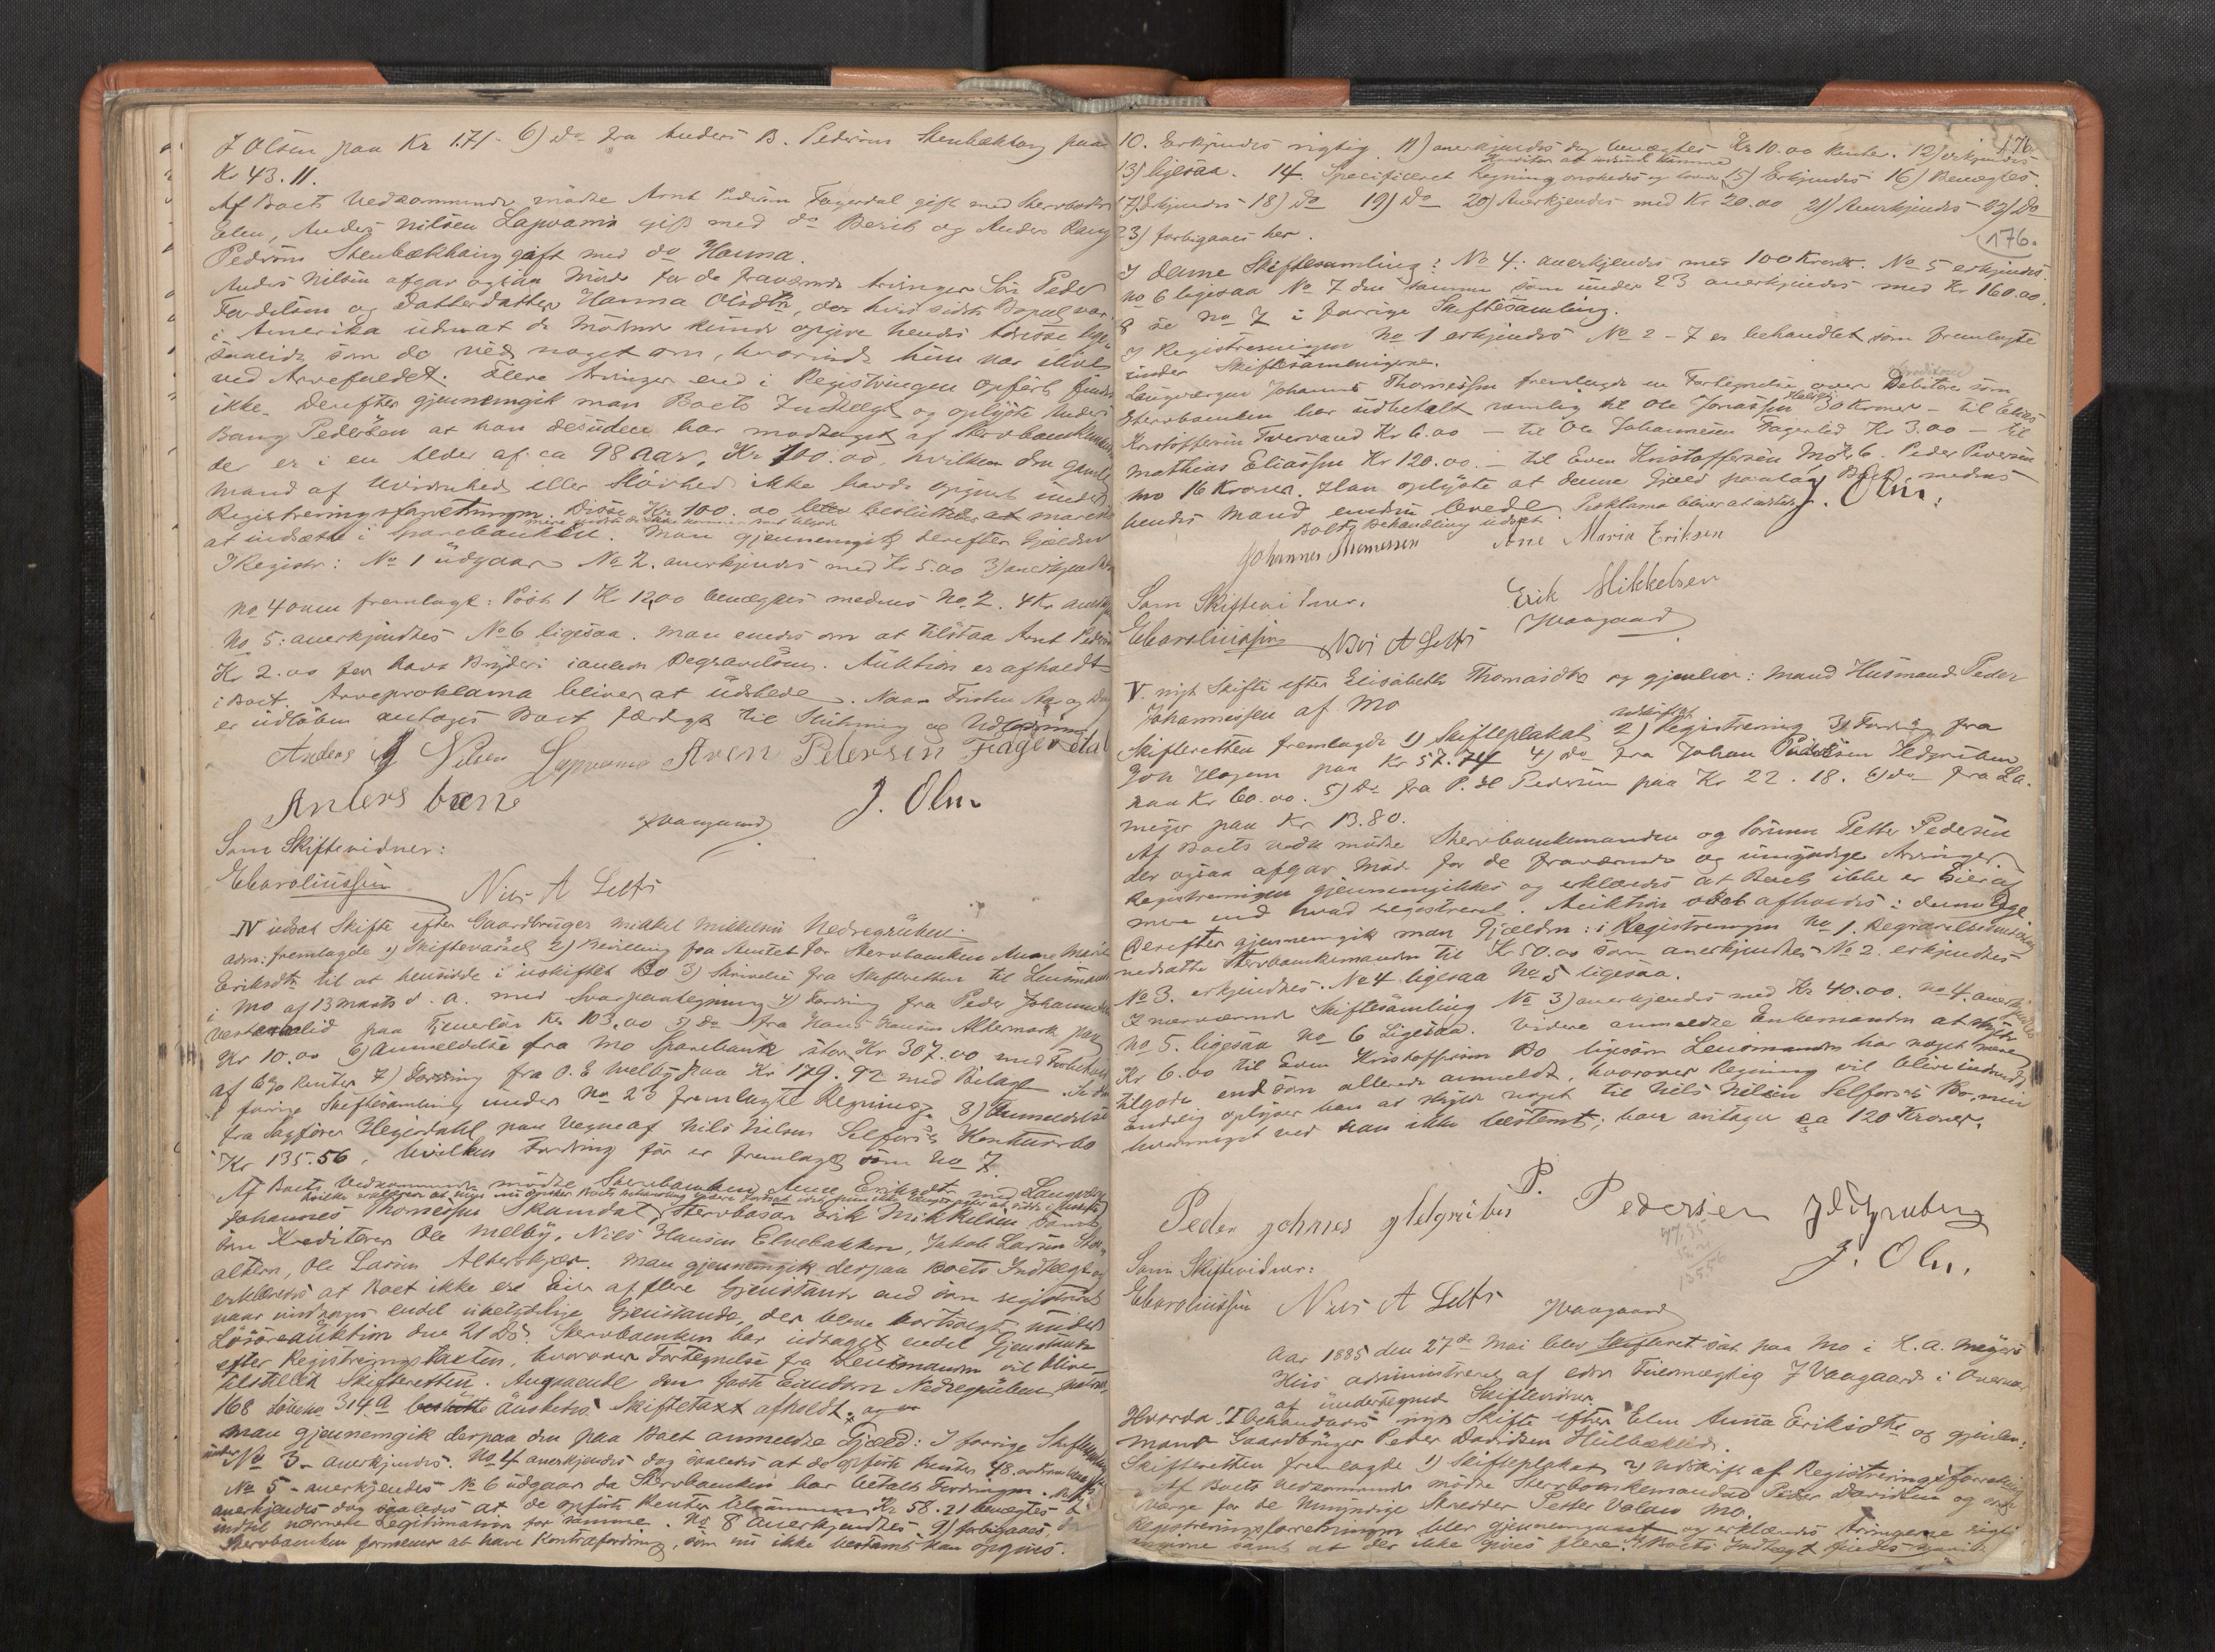 J Olsen paa Kr 171 - 6) do fra Anders B. Pedersen Stenbækhaug paa
Kr 43.11.
Af Boets Vedkommende mødte Arnt Pedersen Fagerdal gift med Stervbodatter
Elen, Anders Nilsen Lapvama gift med do Berit og Anders Bang
Pedersen Stenbækhaug gift med do Hanna.
Anders Nilsen afgav ogsaa Møde for de fraværende Arvinger Søn Peder
og Datterdatter Hanna Olsdtr, der hvis sidste Bopæl var
i Amerika uden at de Mødende kunde opgive hendes Adresse lige-
saalidt som de ved noget om, hvorvidt hun var ilive
ved Arvefaldet. Flere Arvinger end i Registreringen opført findes
ikke. Derefter gjennemgik man Boets Indtægt og oplyste Anders
Bang Pedersen at han desuden har modtaget af Stervbomanden
der er i en Alder af ca 98 Aar, Kr 100.00, hvilken den gamle
Mand af Uvidenhed eller Sløvhed ikke havde opgivet under
Registreringsforretningen. Disse Kr 100.00 blev besluttet at
at indsætte i Sparebanken. Man gjennemgik derefter Gjælden
I Registr: No 1 udgaar No 2. anerkjendes med Kr 5.00 3) anerkjendes
No 4 fremlagt: Post 1 Kr 12,00 benægtes medens No. 2. 4 Kr
No 5: anerkjendtes No 6 ligesaa. Man enedes om at tilstaa Arnt Pedersen
Kr 2.00 for havt Bryderi i anledn Begravelsen. Auktion er afholdt
i Boet. Arveproklama bliver at udstede. Naar Fristen Aar og Dag
er udløben antages Boet færdigt til Slutning og Udlodning
Anders Nilsen Lapvama Aren Petersen Fagerdal
Anders bane
JVaagaard J. Olsn
Som Skiftevidner:
EKarolinssen Nils A Selfs
IV udsat Skifte efter Gaardbruger Mikkel Mikkelsen Nedregruben:
Adm: fremlagde 1) Skiftevarsel 2) Bevilling fra Amtet for Stervboenken Anne Marie
Eriksdtr til at hensidde i uskiftet Bo 3) Skrivelse fra Skifteretten til Lensmanden
i Mo af 13 Marts d. a. med Svarpaategning 4) Fordring fra Peder Johannesen
paa Tjenerløn Kr 103,00 5) do fra Hans Hansen Altermark paa
Kr 10.00 6) Anmeldelse fra Mo Sparebank stor Kr 307.00 med Forbehold
af 6% Renter 7) Fordring fra O. E Melby paa Kr 179.92 med Bilage
i forrige Skiftesamling under No 23 fremlagte Regning. 8) Anmeldelse
fra Sagfører Hegerdahl paa Vegne af Nils Nilsen Selforses Konkursbo
Kr 135.56, hvilken Fordring før er fremlagt som No 7.
Af Boets Vedkommende mødte Stervboenken Anne Eriksdtr med Laugværge
Johannes Thomesen Skamdal, Stervbosøn Erik Mikkelsen samt
som Kreditorer Ole Melby, Nils Hansen Elvebakken, Jakob Larsen
Ole Larsen. Man gjennemgik derpaa Boets Indtægt og
erklæredes at Boet ikke er Eier af flere Gjenstande end som registreret
naar undtages endel ubetydelige Gjenstande, der bleve bortsolgt under
Løsøreauktion den 21 Ds. Stervboenken har udtaget endel Gjenstande
efter Registreringstaxten, hvorover Fortegnelse fra Lensmanden vil blive
tilstillet Skifteretten. Angaaende den faste Eiendom Nedregruben
168 Løbeno 314a besluttedes Skiftetaxt afholdt.
Man gjennemgik derpaa den paa Boet anmeldte Gjæld: I forrige Skiftesamling
under No 3 - anerkjendes. No 4 anerkjendes dog saaledes at de opførte Renter 48.00
No 5 - anerkjendes No 6 udgaar da Stervboenken har betalt Fordringen. No 7
anerkjendes dog saaledes at de opførte Renter tilsammen Kr 58.21 benægtes
indtil nærmere Legitimation for samme. No 8 anerkjendtes. 9) forbigaaes, da
Stervboenken formener at have Kontrafordring, som nu ikke bestemt kan opgives.
176.
10. Erkjendes rigtig 11) anerkjendes dog benægtes Kr 10.00 Renter. 12) erkjendes
13) ligesaa. 14. Specificeret Regning ønskedes 15) Erkjendes 16) Benægtes.
17) Erkjendes 18) Do 19) Do 20) Anerkjendes med Kr 20.00 21) Anerkjendes 22) Do
23) forbigaaes her.
176.
I denne Skiftesamling: No 4: anerkjendes med 100 Kroner. No 5 erkjendes
No 6 ligesaa No 7 den samme som under 23 anerkjendes med Kr 160.00.
8 se No 7 i forrige Skiftesamling.
I Registreringen No 1 erkjendes No 2 - 7 er behandlet som fremlagte
under Skiftesamlingerne.
Laugværgen Johannes Thomessen fremlagde en Fortegnelse over Debitorer som
Stervboenken har udbetalt nemlig til Ole Jonassen 30 Kroner - til Elias
Kristoffersen Tvervand Kr 6.00 - til Ole Johannesen Fagerlid Kr 3.00 - til
Mathias Eliassen Kr 120.00. - til Even Kristoffersen Mo Kr 6. Peder Pedersen
Mo 16 Kroner. Han oplyste at denne Gjæld paalaa Boet, medens
hendes Mand endnu levede. Proklama bliver at udstede J. Olsn.
Boets Behandling udsat.
Johannes Thomessen Ane Maria Eriksen
Som Skiftevidner. Erik Mikkelsen
EKarolinssen Nils A Selfs JVaagaard
V. nyt Skifte efter Elisabeth Thomasdtr og gjenlev: Mand Husmand Peder
Johannessen af Mo
Skifteretten fremlagde 1) Skifteplakat 2) Registrering 3) Fordring fra
Joh Hagen paa Kr 57.74 4) do fra Johan Pedersen Hedgruben
paa Kr 60.00. 5) Do fra P. H Pedersen paa Kr 22.18. 6) do fra L.A.
Meyer paa Kr 13.80.
Af Boets Vedk mødte Stervboenkemanden og Sønnen Petter Pedersen
der ogsaa afgav Møde for de fraværende og umyndige Arvinger.
Registreringen gjennemgikkes og erklæredes at Boet ikke er Eier af
mere end hvad registreret. Auktion afholdes i denne Uge
Derefter gjennemgik man Gjælden: i Registreringen No 1. Begravelsesomkostning
nedsatte Stervboenkemanden til Kr 50.00 som anerkjendtes No 2. erkjendtes
No 3. erkjendtes. No 4 ligesaa No 5 ligesaa.
I nærværende Skiftesamling No 3) anerkjendes med Kr 40.00. No 4. anerkjendes
No 5. ligesaa No 6 Ligesaa. Videre anmeldte Enkemanden at skylde
Kr 6.00 til Even Kristoffersen Bo ligesom Lensmanden har noget mere
tilgode end som allerede anmeldt, hvorover Regning vil blive indsendt
Endelig oplyser han at skylde noget til Nils Nilsen Selforses Bo, men
hvormeget ved han ikke bestemt; han antager ca 120 Kroner.
Peder Johnes Hetgruben P. Pedersen Hedgruben
J. Olsn.
Som Skiftevidner:
EKarolinssen Nils A Selfs JVaagaard
135.56
Aar 1885 den 27de Mai blev Skifteret sat paa Mo i L.A. Meyers
Hus administreret af edsv Fuldmægtig J Vaagaard i Overvær
af undertegnede Skiftevidner.
Hvorda: I behandledes nyt Skifte efter Elen Anna Eriksdtr og gjenlev:
Mand Gaardbruger Peder Davidsen Hulbæklid.
Skifteretten fremlagde 1) Skifteplakat 2) Udskrift af Registreringsforretning
Af Boets Vedkommende mødte Stervboenkemanden Peder Davidsen og
Værge for de Umyndige Skrædder Petter Valan Mo.
Registreringsforretningen blev gjennemgaaet og erklæredes Arvingerne rigtig
samt at der ikke gives flere. Boets Indtægt